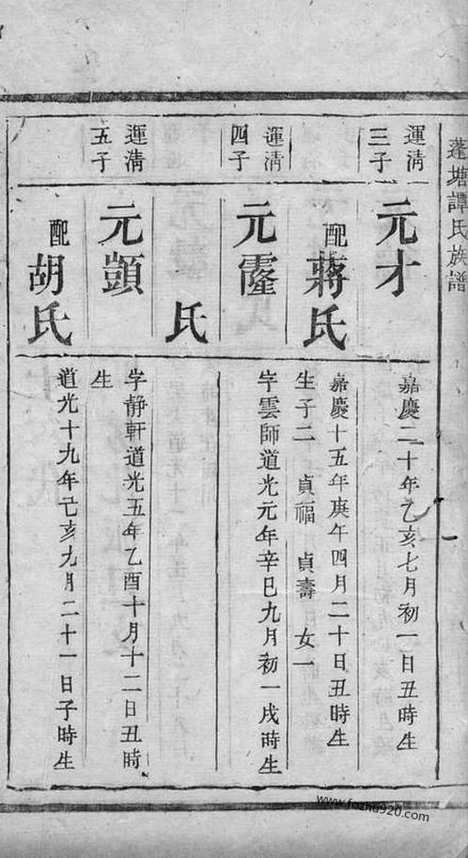 蓬塘譚氏族譜
運清
三子
元才
嘉慶二十年乙亥七月初一日丑時生
配蔣氏
嘉慶十五年庚午四月二十日丑時生
生子二 貞福 貞壽 女一
運清
四子
元霳
字雲師道光元年辛巳九月初一戌時生
氏
運清
五子
元顗
字靜軒道光五年乙酉十月十二日丑時
生
配胡氏
道光十九年己亥九月二十一日子時生
www.fozhu920.com